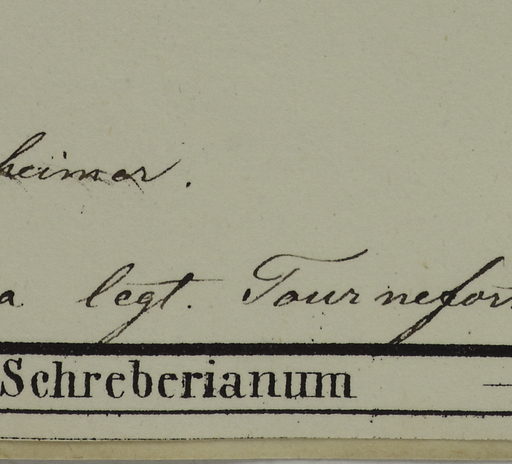 heimer.
a legt. Tournefor
Schreberianum